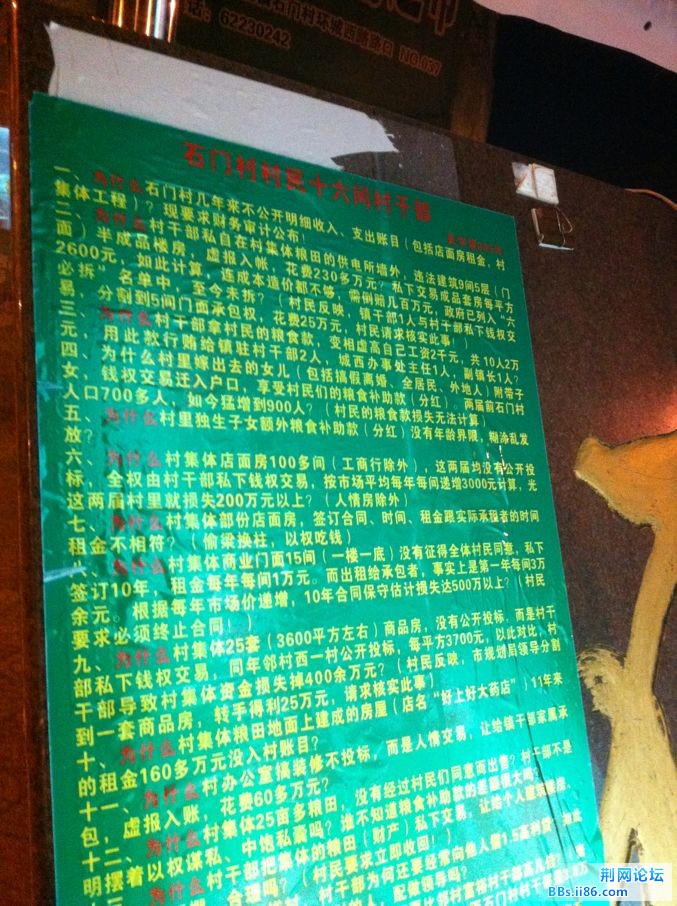 石门村环城西路
话：62230242 NO.037
石门村村民十六问村干部
一、为什么石门村几年来不公开明细收入、支出账目（包括店面房租金，村
集体工程）？现要求财务审计公布！
二、为什么村干部私自在村集体粮田的供电所墙外，违法建筑9间5层（门
面）半成品楼房，虚报入帐，花费230多万？私下交易成品套房每平方
2600元，如此计算，连成本造价都不够，需倒赔几百万元，政府已列入"六
必拆"名单中，至今未拆？（村民反映，镇干部1人与村干部私下钱权交
易，分割到5间门面承包权，花费25万元，村民请求核实此事！）
三、为什么村干部拿村民的粮食款，变相虚高自己工资2千元，共10人2万
元，用此款行贿给镇驻村干部2人，城西办事处主任1人，副镇长1人？
四、为什么村里嫁出去的女儿（包括搞假离婚、全居民、外地人）附带子
女，钱权交易迁入户口，享受村民们的粮食补助款（分红）。两届前石门村
人口700多人，如今猛增到900人？（村民的粮食款损失无法计算）
五、为什么村里独生子女额外粮食补助款（分红）没有年龄界限，糊涂乱发
放？
六、为什么村集体店面房100多间（工商行除外），这两届均没有公开投
标，全权由村干部私下钱权交易，按市场平均每年每间递增3000元计算，光
这两届村里就损失200万元以上？（人情房除外）
七、为什么村集体部份店面房，签订合同、时间、租金跟实际承租者的时间
租金不相符？（偷梁换柱，以权吃钱）
八、为什么村集体商业门面15间（一楼一底）没有征得全体村民同意，私下
签订10年，租金每年每间1万元。而出租给承包者，事实上是第一年每间3万
余元。根据每年市场价递增，10年合同保守估计损失达500万以上？（村民
要求必须终止合同！）
九、为什么村集体25套（3600平方左右）商品房，没有公开投标，而是村干
部私下钱权交易，同年邻村西一村公开投标，每平方3700元，以此对比，村
干部导致村集体资金损失掉400余万元？（村民反映，市规划局领导分割
到一套商品房，转手得利25万元，请求核实此事）
十、为什么村集体粮田地面上建成的房屋（店名"好上好大药店"）11年来
的租金160多万元没入村账目？
十一、为什么村办公室搞装修不投标，而是人情交易，让给镇干部家属承
包，虚报入账，花费60多万元？
十二、为什么村集体25亩多粮田，没有经过村民们同意而出售？村干部不是
明摆着以权谋私、中饱私囊吗？谁不知道粮食补助款的差额很大吗？
为什么村干部把集体的粮田（财产）私下交易，让给个人建筑
合理吗？（村民要求立即收回！）
村干部为何还要经常向他人借1.5高利贷
的人，配做领导吗？
荆网论坛
BBs.ii86.com